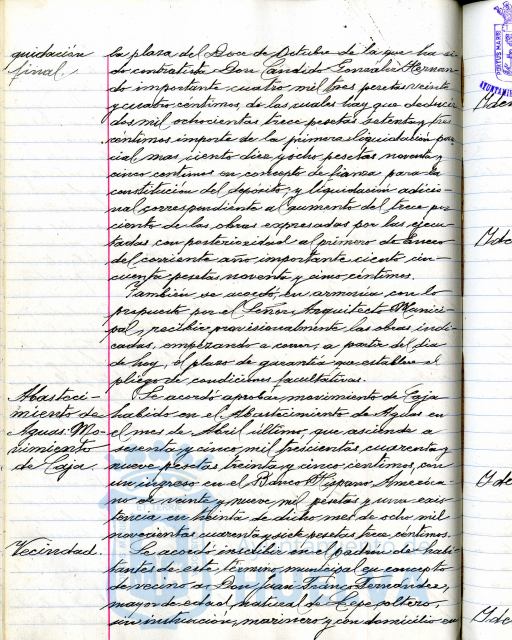 quidación
final
la plaza del Doce de Octubre de la que ha si-
do contratista Don Candido Gonzalez Hernan-
do importante cuatro mil tres pesetas veinte
y cuatro céntimos, de las cuales hay que deducir
dos mil ochocientas trece pesetas setenta y tres
céntimos importe de la primera liquidación par-
cial mas ciento diez y ocho pesetas noventa y
cinco céntimos en concepto de fianza para la
constitución del depósito, y liquidación adicio-
nal correspondiente al aumento del trece por
ciento de las obras expresadas por las ejecu-
tadas con posterioridad al primero de Enero
del corriente año importante ciento cin-
cuenta pesetas noventa y cinco céntimos.
También se acordó, en armonía con lo
propuesto por el Señor Arquitecto Munici-
pal, recibir provisionalmente las obras indi-
cadas, empezando a correr, a partir del dia
de hoy, el plazo de garantía que establece el
pliego de condiciones facultativas.
Abasteci-
miento de
Aguas. Mo-
vimiento
de Caja.
Se acordó aprobar movimiento de Caja
habido en el Abastecimiento de Aguas en
el mes de Abril último, que asciende a
sesenta y cinco mil trescientas cuarenta y
nueve pesetas treinta y cinco céntimos, con
un ingreso en el Banco Hispano America-
no de veinte y nueve mil pesetas y una exis-
tencia en treinta de dicho mes de ocho mil
novecientas cuarenta y siete pesetas trece céntimos.
Vecindad.
Se acordó inscribir en el padrón de habi-
tantes de este término municipal en concepto
de vecino a Don Juan Franco Fernandez,
mayor de edad, natural de Lepe, soltero,
sin instrucción, marinero y con domicilio en
Idem
Ide
Ide
Ide